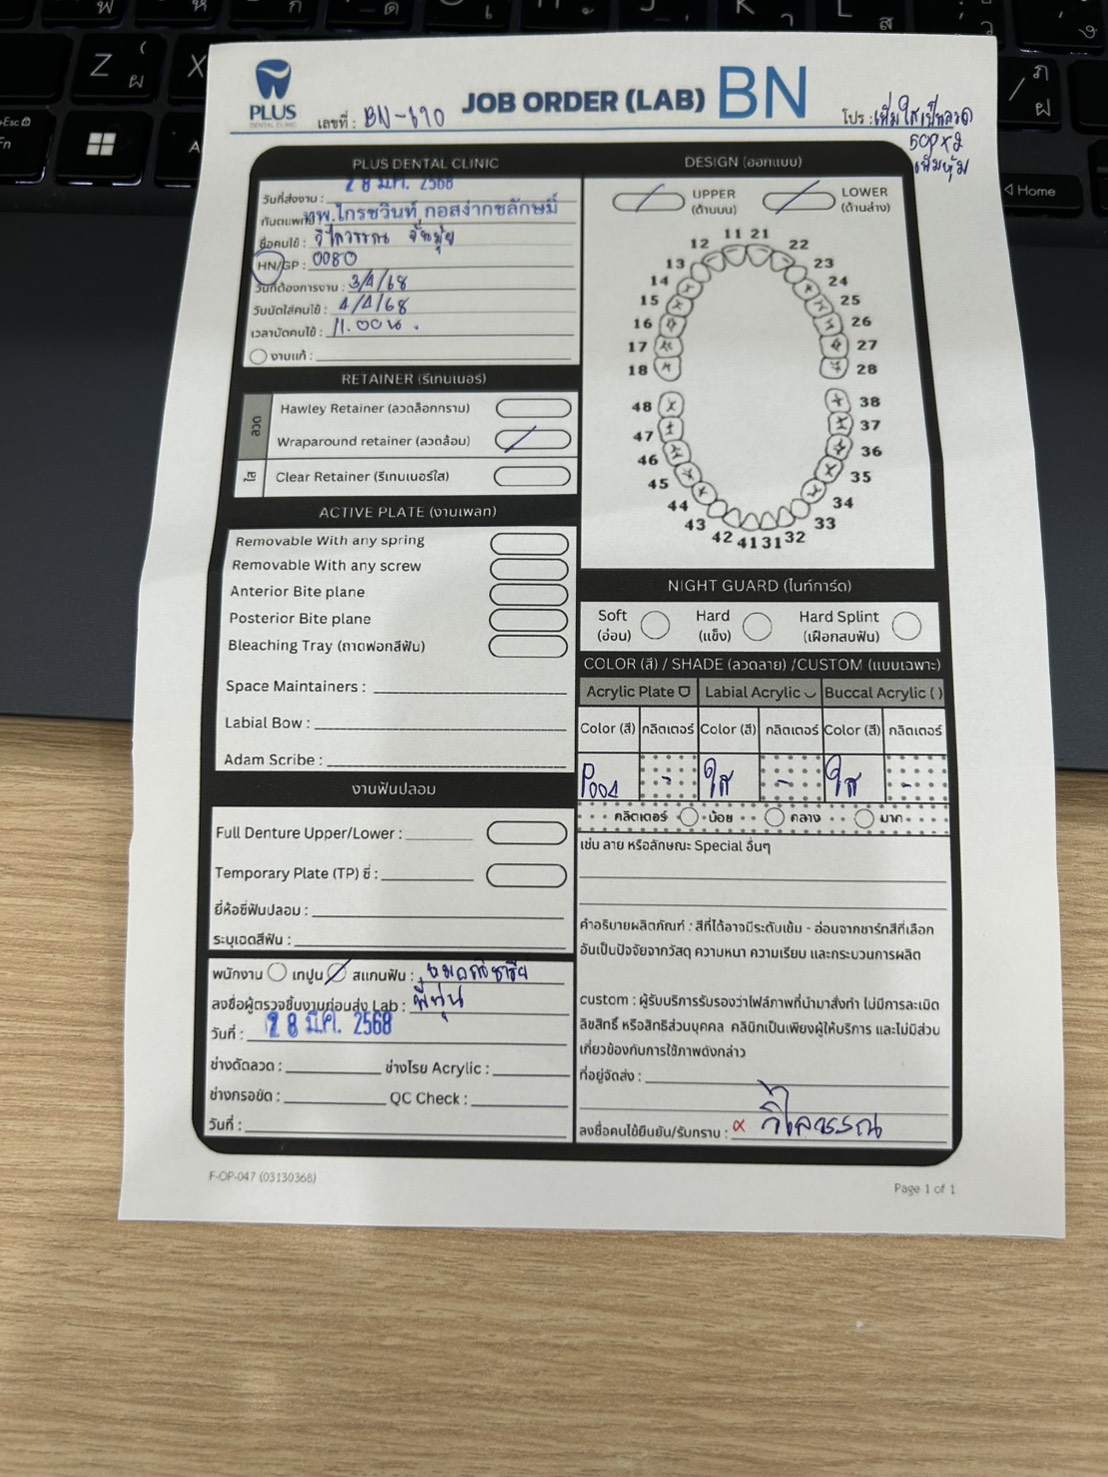 PLUS
DENTAL CLINIC
เลขที่ : BN-690
JOB ORDER (LAB) BN
โปร : เพิ่มใสเป็นลวด
500x2
เพิ่มหุ้ม
PLUS DENTAL CLINIC
วันที่ส่งงาน : 28 มี.ค. 2568
ทันตแพทย์ ทพ.ไกรชวินท์ กอสง่ากชลักษมี
ชื่อคนไข้ : วิไลวรรณ
HN/GP : 0080
วันที่ต้องการงาน : 3/4/68
วันนัดใส่คนไข้ : 4/4/68
เวลานัดคนไข้ : 11.00 น.
งานแก้ :
RETAINER (รีเทนเนอร์)
ลวด
Hawley Retainer (ลวดล็อกกราม)
Wraparound retainer (ลวดล้อม)
ใส
Clear Retainer (รีเทนเนอร์ใส)
ACTIVE PLATE (งานเพลท)
Removable With any spring
Removable With any screw
Anterior Bite plane
Posterior Bite plane
Bleaching Tray (ถาดฟอกสีฟัน)
Space Maintainers :
Labial Bow :
Adam Scribe :
งานฟันปลอม
Full Denture Upper/Lower :
Temporary Plate (TP) ซี่ :
ยี่ห้อซี่ฟันปลอม :
ระบุเฉดสีฟัน :
พนักงาน เทปูน สแกนฟัน :
ลงชื่อผู้ตรวจชิ้นงานก่อนส่ง Lab : พี่ทุ่น
วันที่ : 28 มี.ค. 2568
ช่างดัดลวด : ช่างโรย Acrylic :
ช่างกรอขัด : QC Check :
วันที่ :
DESIGN (ออกแบบ)
UPPER
(ด้านบน)
LOWER
(ด้านล่าง)
11 21
12 22
13 23
14 24
15 25
16 26
17 27
18 28
48 38
47 37
46 36
45 35
44 34
43 33
42 41 31 32
NIGHT GUARD (ไนท์การ์ด)
Soft
(อ่อน)
Hard
(แข็ง)
Hard Splint
(เฝือกสบฟัน)
COLOR (สี) / SHADE (ลวดลาย) /CUSTOM (แบบเฉพาะ)
Acrylic Plate Labial Acrylic Buccal Acrylic ( )
Color (สี) กลิตเตอร์ Color (สี) กลิตเตอร์ Color (สี) กลิตเตอร์
P004 - ใส - ใส -
กลิตเตอร์ น้อย กลาง มาก
เช่น ลาย หรือลักษณะ Special อื่นๆ
คำอธิบายผลิตภัณฑ์ : สีที่ได้อาจมีระดับเข้ม - อ่อนจากชาร์ทสีที่เลือก
อันเป็นปัจจัยจากวัสดุ ความหนา ความเรียบ และกระบวนการผลิต
custom : ผู้รับบริการรับรองว่าไฟล์ภาพที่นำมาสั่งทำ ไม่มีการละเมิด
ลิขสิทธิ์ หรือสิทธิส่วนบุคคล คลินิกเป็นเพียงผู้ให้บริการ และไม่มีส่วน
เกี่ยวข้องกับการใช้ภาพดังกล่าว
ที่อยู่จัดส่ง :
ลงชื่อคนไข้ยืนยัน/รับทราบ : วิไลวรรณ
F-OP-047 (03130368)
Page 1 of 1
Home